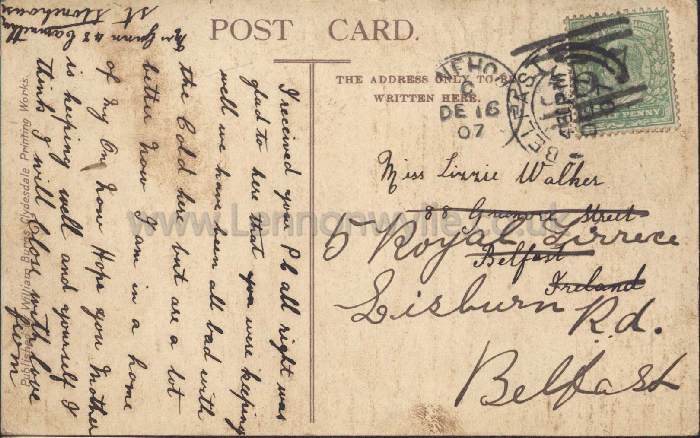 POST CARD.
THE ADDRESS ONLY TO BE
WRITTEN HERE.
Published by William Burns, Clydesdale Printing Works.
I received your P.C. all right was
glad to here that you were keeping
well we have been all bad with
the Cold here but are a lot
better now I am in a home
of my Own now Hope you Mother
is keeping well and yourself I
think I will Close with love
from
Gunn 48
St Stonehouse
NEHO
C
DE 16
07
BELFAST
Miss Lizzie Walker
88 Street
Belfast
Ireland
5 Royal Terrece
Lisburn Rd.
Belfast
HALF PENNY
www.Lennonwylie.co.uk